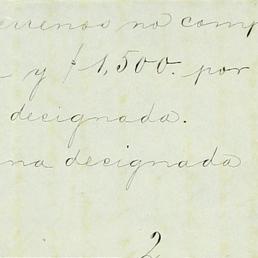 terrenos no comp
y $1,500. por
designada.
na designada
2